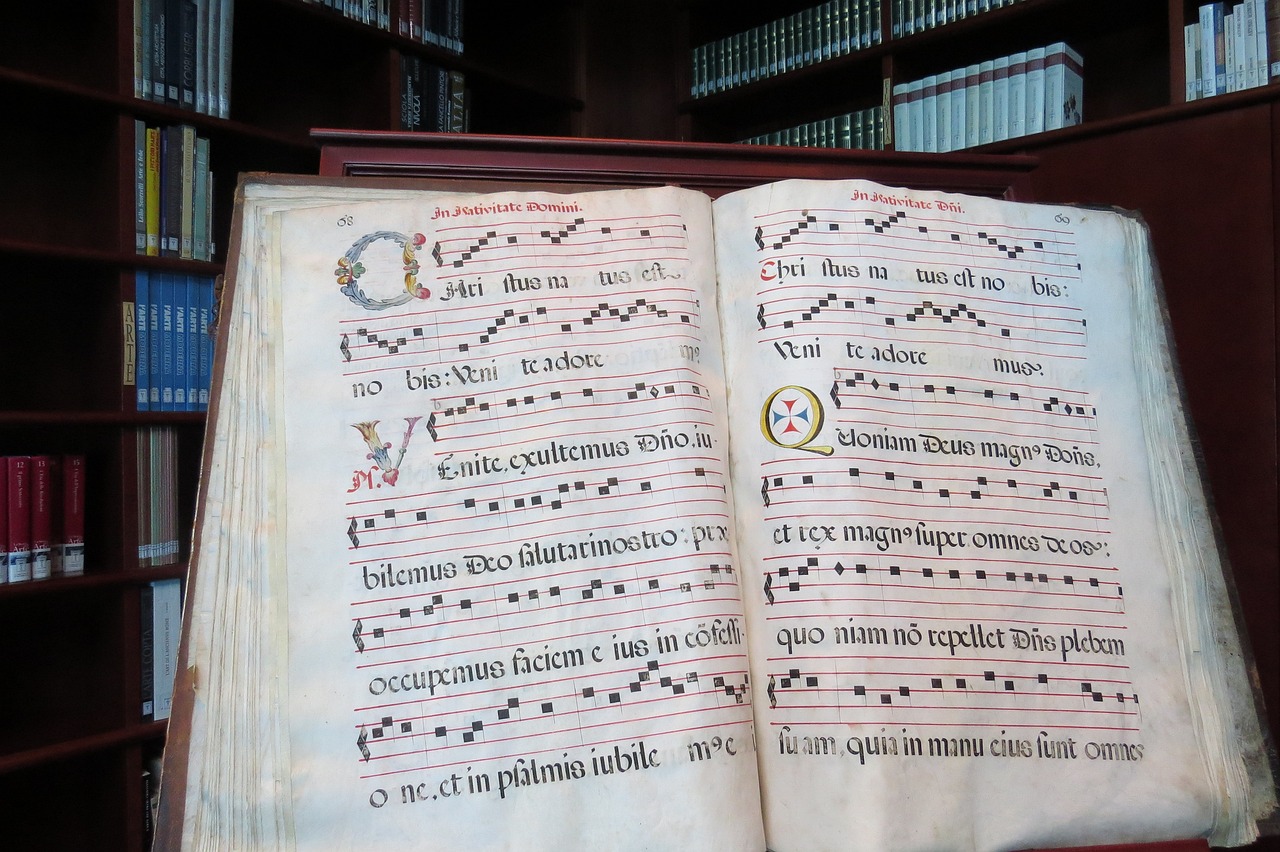 68
In Nativitate Domini.
CHri stus na tus est
no bis: Veni te adore m9
Ps. VEnite, exultemus Dño, iu-
bilemus Deo salutari nostro: præ
occupemus faciem e ius in cõfessi-
o ne, et in psalmis iubile m9 e
69
In Nativitate Dñi.
Chri stus na tus est no bis:
Veni te adore mus.
Quoniam Deus magn9 Doñs,
et rex magn9 super omnes deos:
quo niam nõ repellet Dñs plebem
su am, quia in manu eius sunt omnes
ARTE
L'ARTE
L'ARTE
L'ARTE
L'ARTE